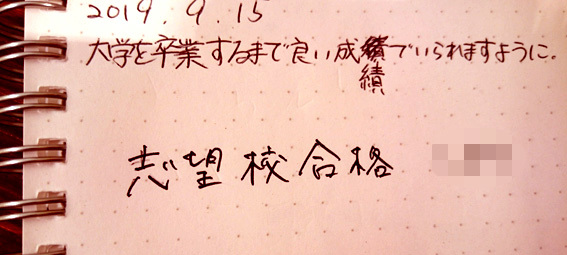 2019.9.15
大学を卒業するまで良い成績でいられますように.
績
志望校合格